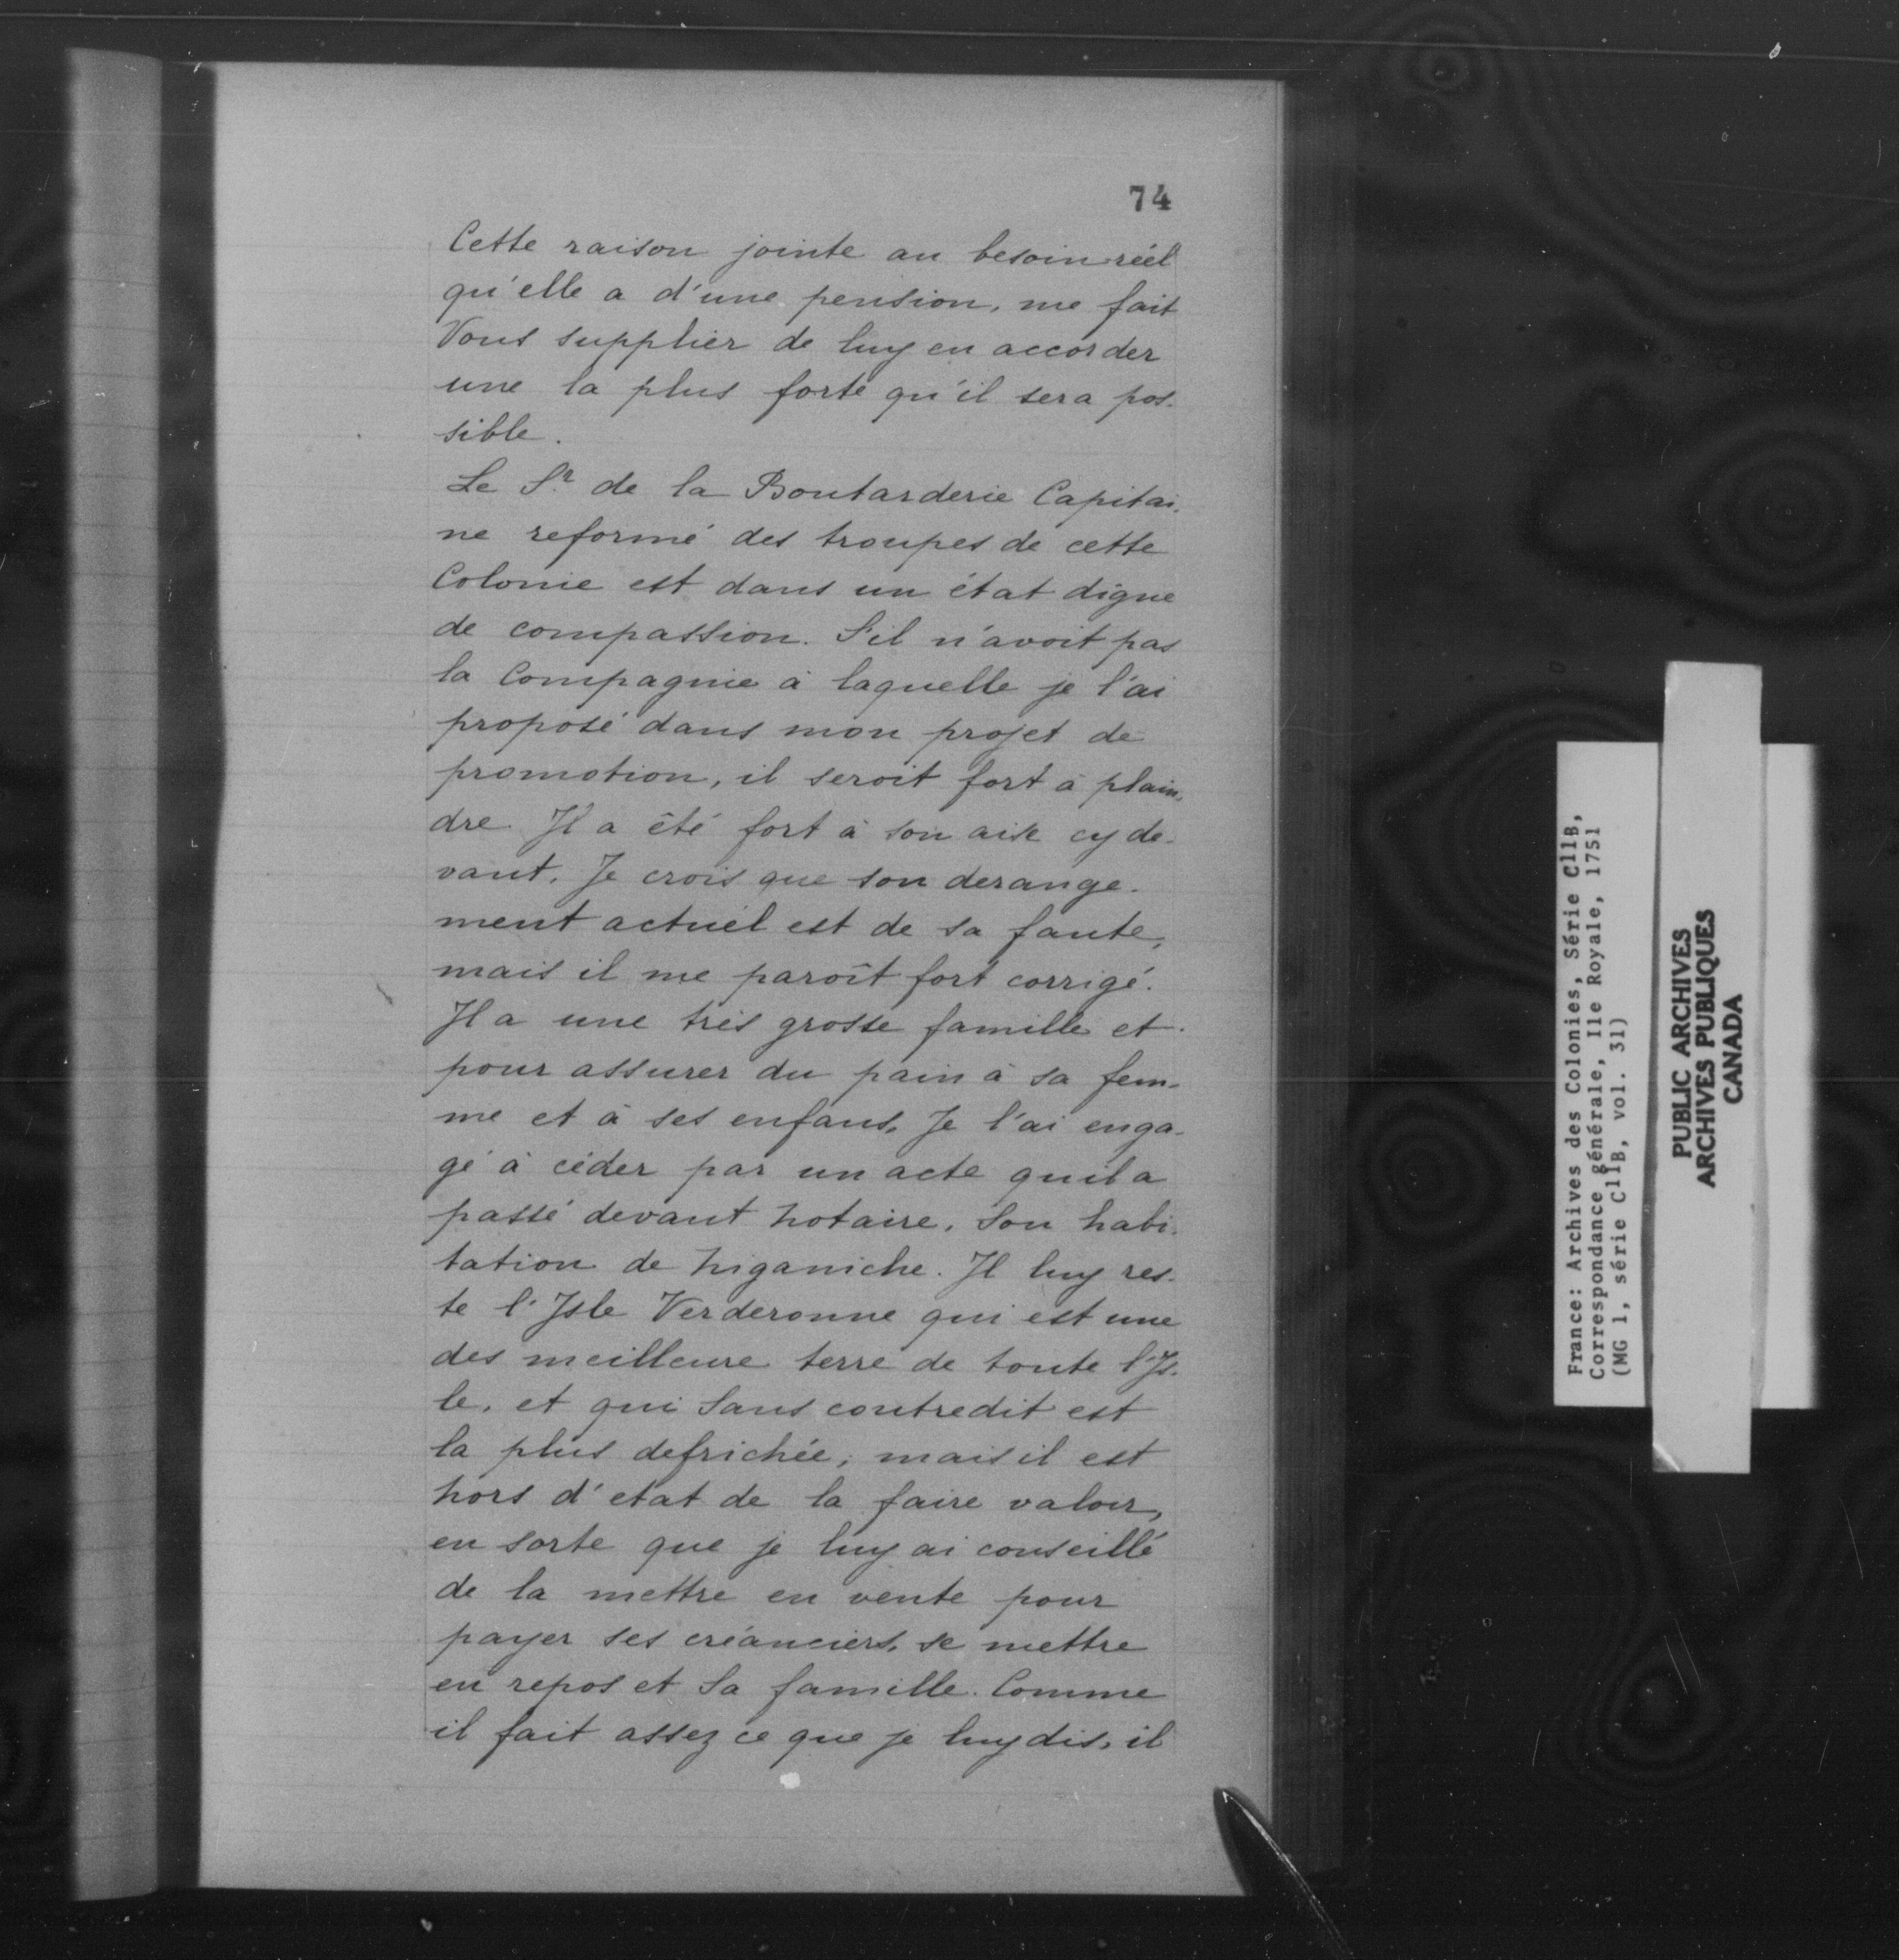 74
Cette raison jointe au besoin réél
qu'elle a d'une pension, me fait
Vous supplier de luy en accorder
une la plus forte qu'il sera pos-
sible.
Le Sr. de la Boutarderie Capitai-
ne reformé des troupes de cette
Colonie est dans un état digne
de compassion. S'il n'avoit pas
la Compagnie à laquelle je l'ai
proposé dans mon projet de
promotion, il seroit fort à plain-
dre. Il a été fort à son aise cy de-
vant. Je crois que son derange-
ment actuél est de sa faute,
mais il me paroît fort corrigé.
Il a une très grosse famille et
pour assurer du pain à sa fem-
me et à ses enfans, Je l'ai enga-
gé à céder par un acte qu'il a
passé devant notaire, Son habi-
tation de Niganiche. Il luy res-
te l'Isle Verderonne qui est une
des meilleure terre de toute l'Is-
le, et qui Sans contredit est
la plus defrichée; mais il est
hors d'etat de la faire valoir,
en sorte que je luy ai conseillé
de la mettre en vente pour
payer ses créanciers, se mettre
en repos et Sa famille. Comme
il fait assez ce que je luy dis, il
France: Archives des Colonies, Série C11B,
Correspondance générale, Ile Royale, 1751
(MG 1, série C11B, vol. 31)
PUBLIC ARCHIVES
ARCHIVES PUBLIQUES
CANADA